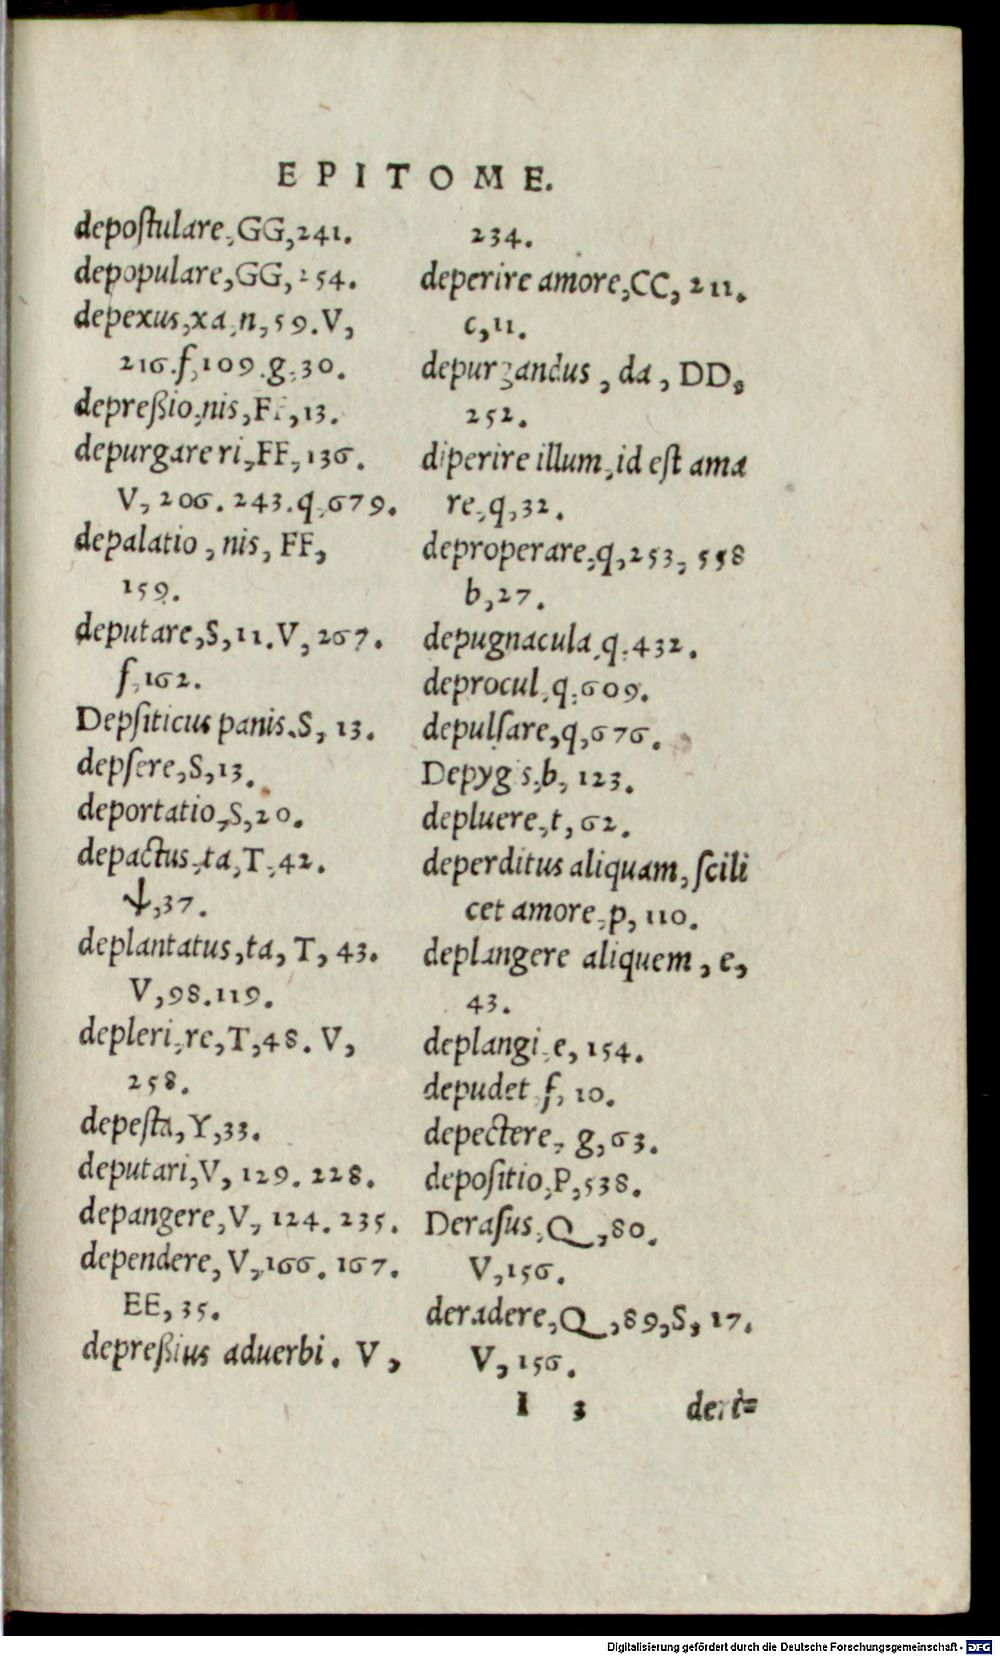 EPITOME.
depoſtulare, GG, 241.
depopulare, GG, 254.
depexus, xa, n, 59. V,
216. f, 109. g, 30.
depreßio, nis, FF, 13.
depurgare ri, FF, 136.
V, 206. 243. q, 679.
depalatio, nis, FF,
159.
deputare, S, 11. V, 267.
f, 162.
Depſiticus panis. S, 13.
depſere, S, 13.
deportatio, S, 20.
depactus, ta, T, 42.
ↆ, 37.
deplantatus, ta, T, 43.
V, 98. 119.
depleri, re, T, 48. V,
258.
depeſta, Y, 33.
deputari, V, 129. 228.
depangere, V, 124. 235.
dependere, V, 166. 167.
EE, 35.
depreßius aduerbi. V,
234.
deperire amore, CC, 211.
c, 11.
depurgandus, da, DD,
252.
diperire illum, id eſt ama
re, q, 32.
deproperare, q, 253, 558
b, 27.
depugnacula, q, 432.
deprocul, q, 609.
depulſare, q, 676.
Depygis, b, 123.
depluere, t, 62.
deperditus aliquam, ſcili
cet amore, p, 110.
deplangere aliquem, e,
43.
deplangi, e, 154.
depudet, f, 10.
depectere, g, 63.
depoſitio, P, 538.
Deraſus, Q, 80.
V, 156.
deradere, Q, 89, S, 17.
V, 156.
I 3 deri=
Digitalisierung gefördert durch die Deutsche Forschungsgemeinschaft - DFG